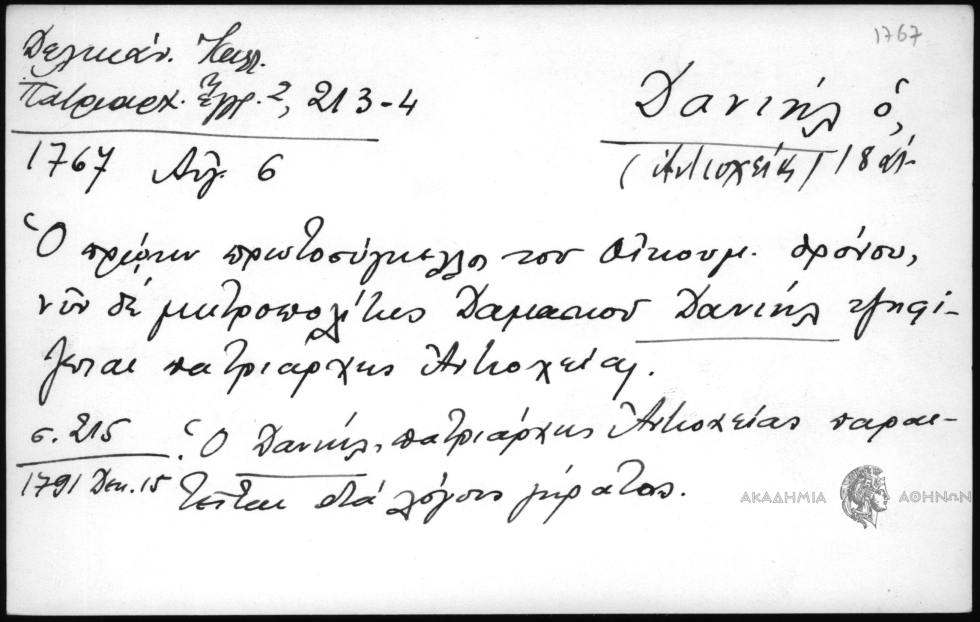 1767
Δελικάν. Καλλ.
Πατριαρχ. Ἔγγρ. 2, 213-4
Δανιήλ ὁ,
(Ἀντιοχείας) 18 αἰ.
1767 Αὐγ. 6
Ὁ πρώην πρωτοσύγκελλος του Οἰκουμ. θρόνου,
νῦν δέ μητροπολίτης Δαμασκοῦ Δανιήλ ψηφί-
ζεται πατριάρχης Ἀντιοχείας.
σ. 215
1791 Δεκ. 15
Ὁ Δανιήλ, πατριάρχης Ἀντιοχείας παραι-
τεῖται διά λόγους γήρατος.
ΑΚΑΔΗΜΙΑ ΑΘΗΝΩΝ